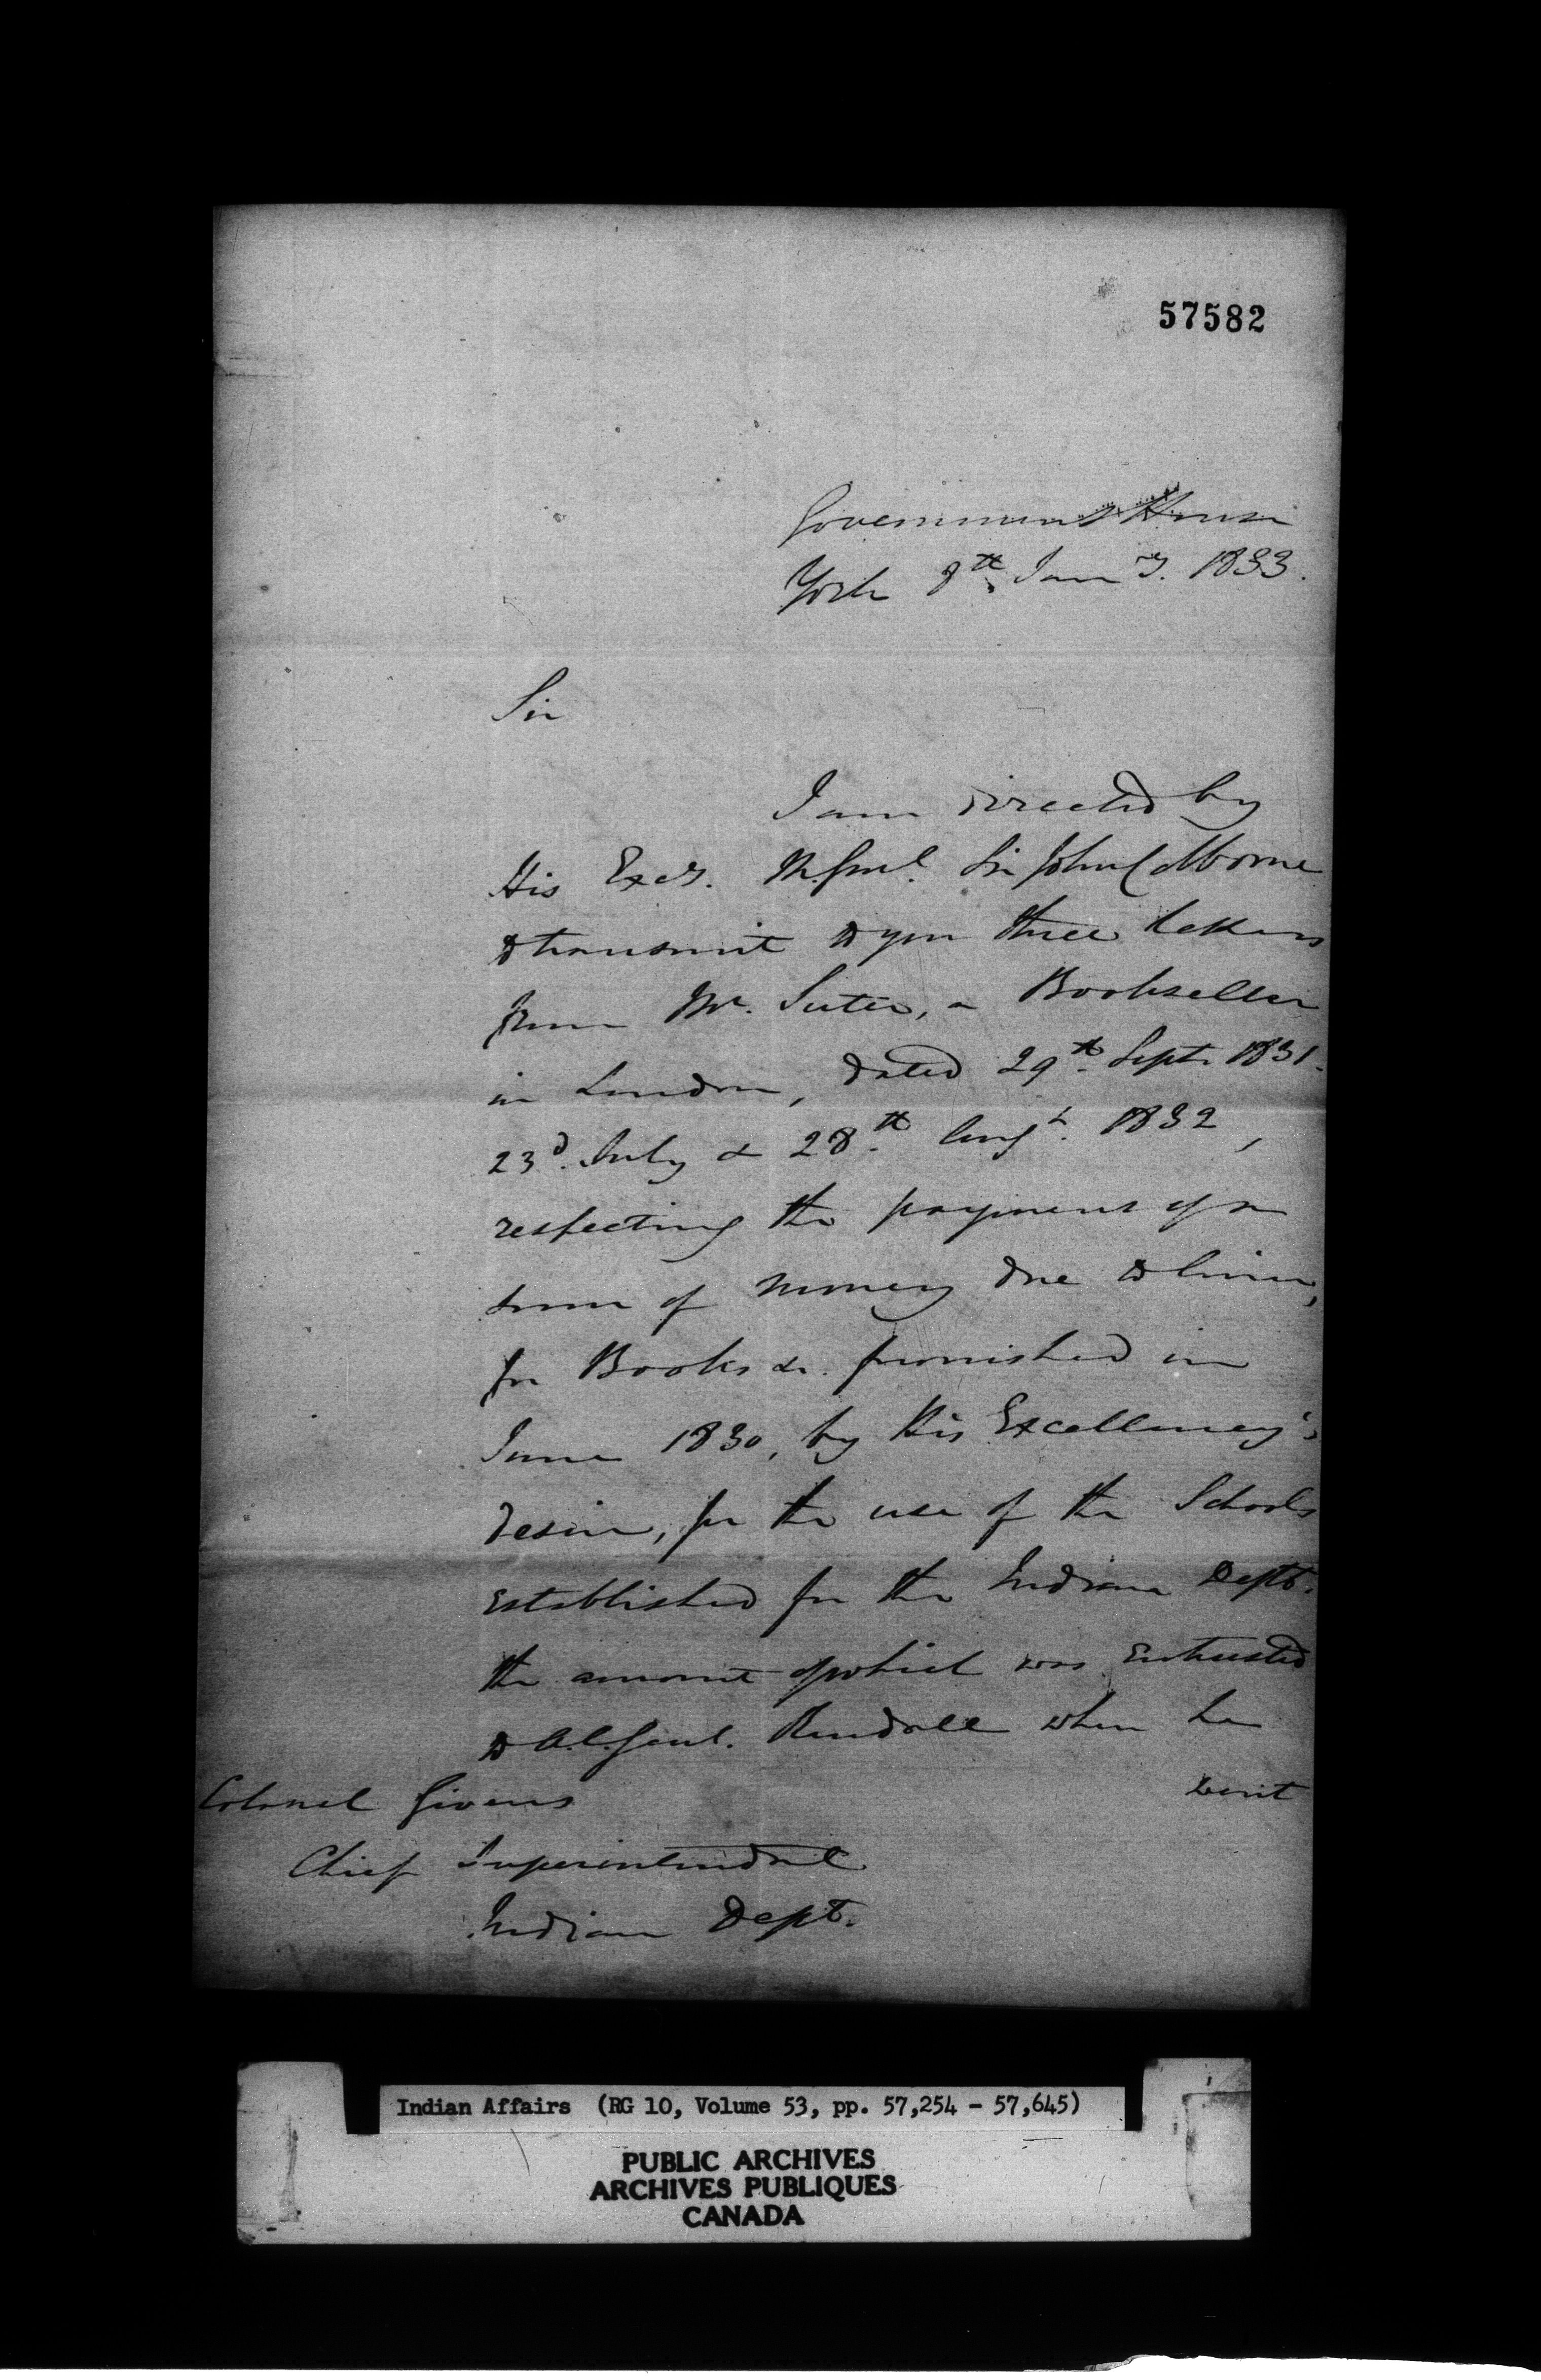 57582
Government House
York 8th Jany. 1833.
Sir
I am directed by
His Excy. M. Genl. Sir John Colborne
to transmit to you three letters
from Mr. Suter, a Bookseller
in London, dated 29th. Septr. 1831.
23d. July & 28th. Augt. 1832,
respecting the payment of a
sum of money due to him,
for Books &c. furnished in
June 1830, by His Excellency's
desire, for the use of the Schools
established for the Indian Dept.
the amount of which was entrusted
to A.C. Genl. Rendall when he
went
Colonel Givens
Chief Superintendent
Indian Dept.
Indian Affairs (RG 10, Volume 53, pp. 57,254 - 57,645)
PUBLIC ARCHIVES
ARCHIVES PUBLIQUES
CANADA